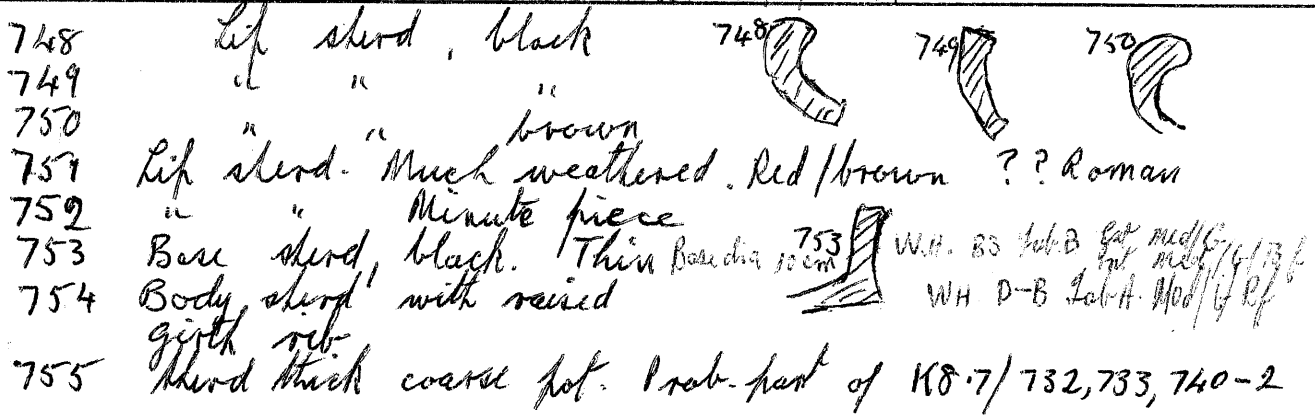 748 Lip sherd, black 748 749 750
749 " " "
750 " " brown
751 Lip sherd. Much weathered. Red/brown ?? Roman
752 " " Minute piece
753 Base sherd, black. Thin Base dia 10cm 753 W.H. B3 Fab.B Ext med/G
Int med/G/B f
754 Body sherd with raised WH D-B Fab A. Mod/G Rf
girth rib
755 Sherd thick coarse pot. Prob. part of K8.7/732,733,740-2